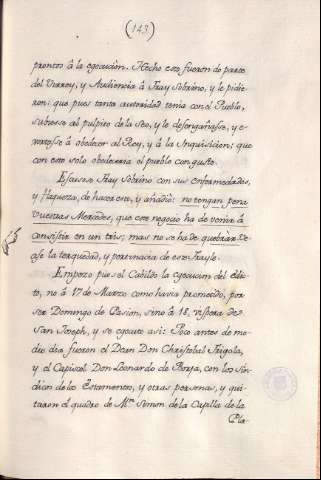 (143)
prontos â la egecucion. Hecho esto fueron de parte
del Virrey, y Audiencia â Fray Sobrino, y le pidie-
ron: que pues tanta autoridad tenia con el Pueblo,
subiesse al pulpito de la Seo, y le desengañasse, y e-
xortasse â obedecer al Rey, y â la Inquisicion: que
con esto solo obedeceria el pueblo con gusto.
Escusose Fray Sobrino con sus enfermedades,
y flaqueza, de hacer esto, y añadiò: no tengan pena
Vuestras Mercedes, que este negocio ha de venir â
consistir en un tris; mas no se ha de quebràr. Ve-
ase la terquedad, y pertinacia de este Frayle.
Empezo pues el Cabildo la egecucion del edic-
to, no â 17 de Marzo como havia prometido, por
ser Domingo de Pasion, sino â 18, vispera de
San Joseph, y se egecuto asi: Poco antes de me-
dio dia fueron el Dean Don Christobal Frigola,
y el Capiscol Don Leonardo de Borja, con los Sin-
dicos de los Estamentos, y otras personas, y qui-
taron el quadro de Mn. Simon de la Capilla de la